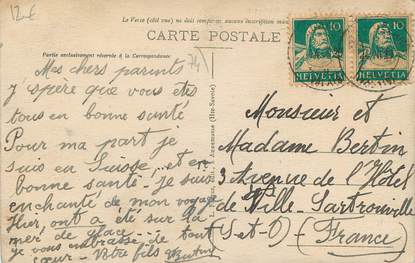 12€
Le Verso (côté vue) ne doit comporter aucune inscription
CARTE POSTALE
Partie exclusivement réservée à la Correspondance
74
10
10
HELVETIA
HELVETIA
Annemasse (Hte-Savoie)
Mes chers parents
j'éspère que vous êtes
tous en bonne santé
Pour ma part je
suis en Suisse et en
bonne santé. Je suis
enchanté de mon voyage
Hier, on a été sur la
mer de glace
je vous embrasse de tout
cœur - Votre fils
Monsieur et
Madame Bertin
3 Avenue de l'Hôtel
de Ville - Sartrouville
(S-et-O) - (France)